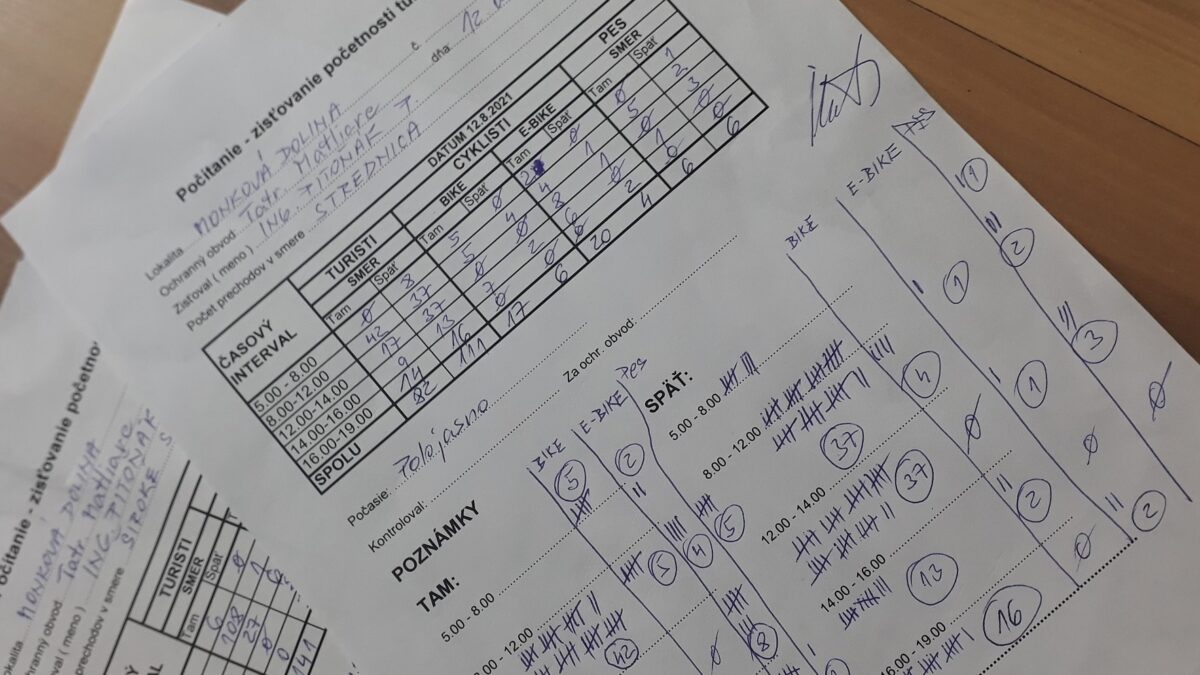 Počítanie - zisťovanie početnosti
č dňa: 12
Lokalita MONKOVÁ DOLINA
Ochranný obvod Tatr. Matliare 7
Zisťoval ( meno ) ING PITONÁK
Počet prechodov v smere STREDNICA
DATUM 12.8.2021
ČASOVÝ INTERVAL
TURISTI CYKLISTI PES
SMER BIKE E-BIKE SMER
Tam Späť Tam Späť Tam Späť Tam Späť
5.00 - 8.00 0 8 5 0 2 0 0 1
8.00-12.00 42 37 5 4 4 1 5 2
12.00-14.00 17 37 0 0 8 1 0 3
14.00-16.00 9 13 7 2 6 0 1 0
16.00-19.00 14 16 0 0
SPOLU 82 111 17 6 20
Počasie: Polojasno
Kontroloval: Za ochr. obvod:
POZNÁMKY
BIKE E-BIKE Pes
TAM:
5.00 - 8.00 5 2
8.00 - 12.00 42 5 4 5
8
SPÄŤ:
BIKE E-BIKE PES
5.00 - 8.00 1
8.00 - 12.00 37 4 1 2
12.00 - 14.00 37 0 1 3
14.00 - 16.00 13 2 0 0
16.00 - 19.00 16 0 2
Počítanie - zisťovanie početno
Lokalita MONKOVÁ DOLINA
Ochranný obvod Tatr. Matliare
ING PITONÁK
prechodov v smere SIROKE S
TURISTI
SMER
Tam Späť
6 0
108 1
27
0
0
141
ČASOVÝ